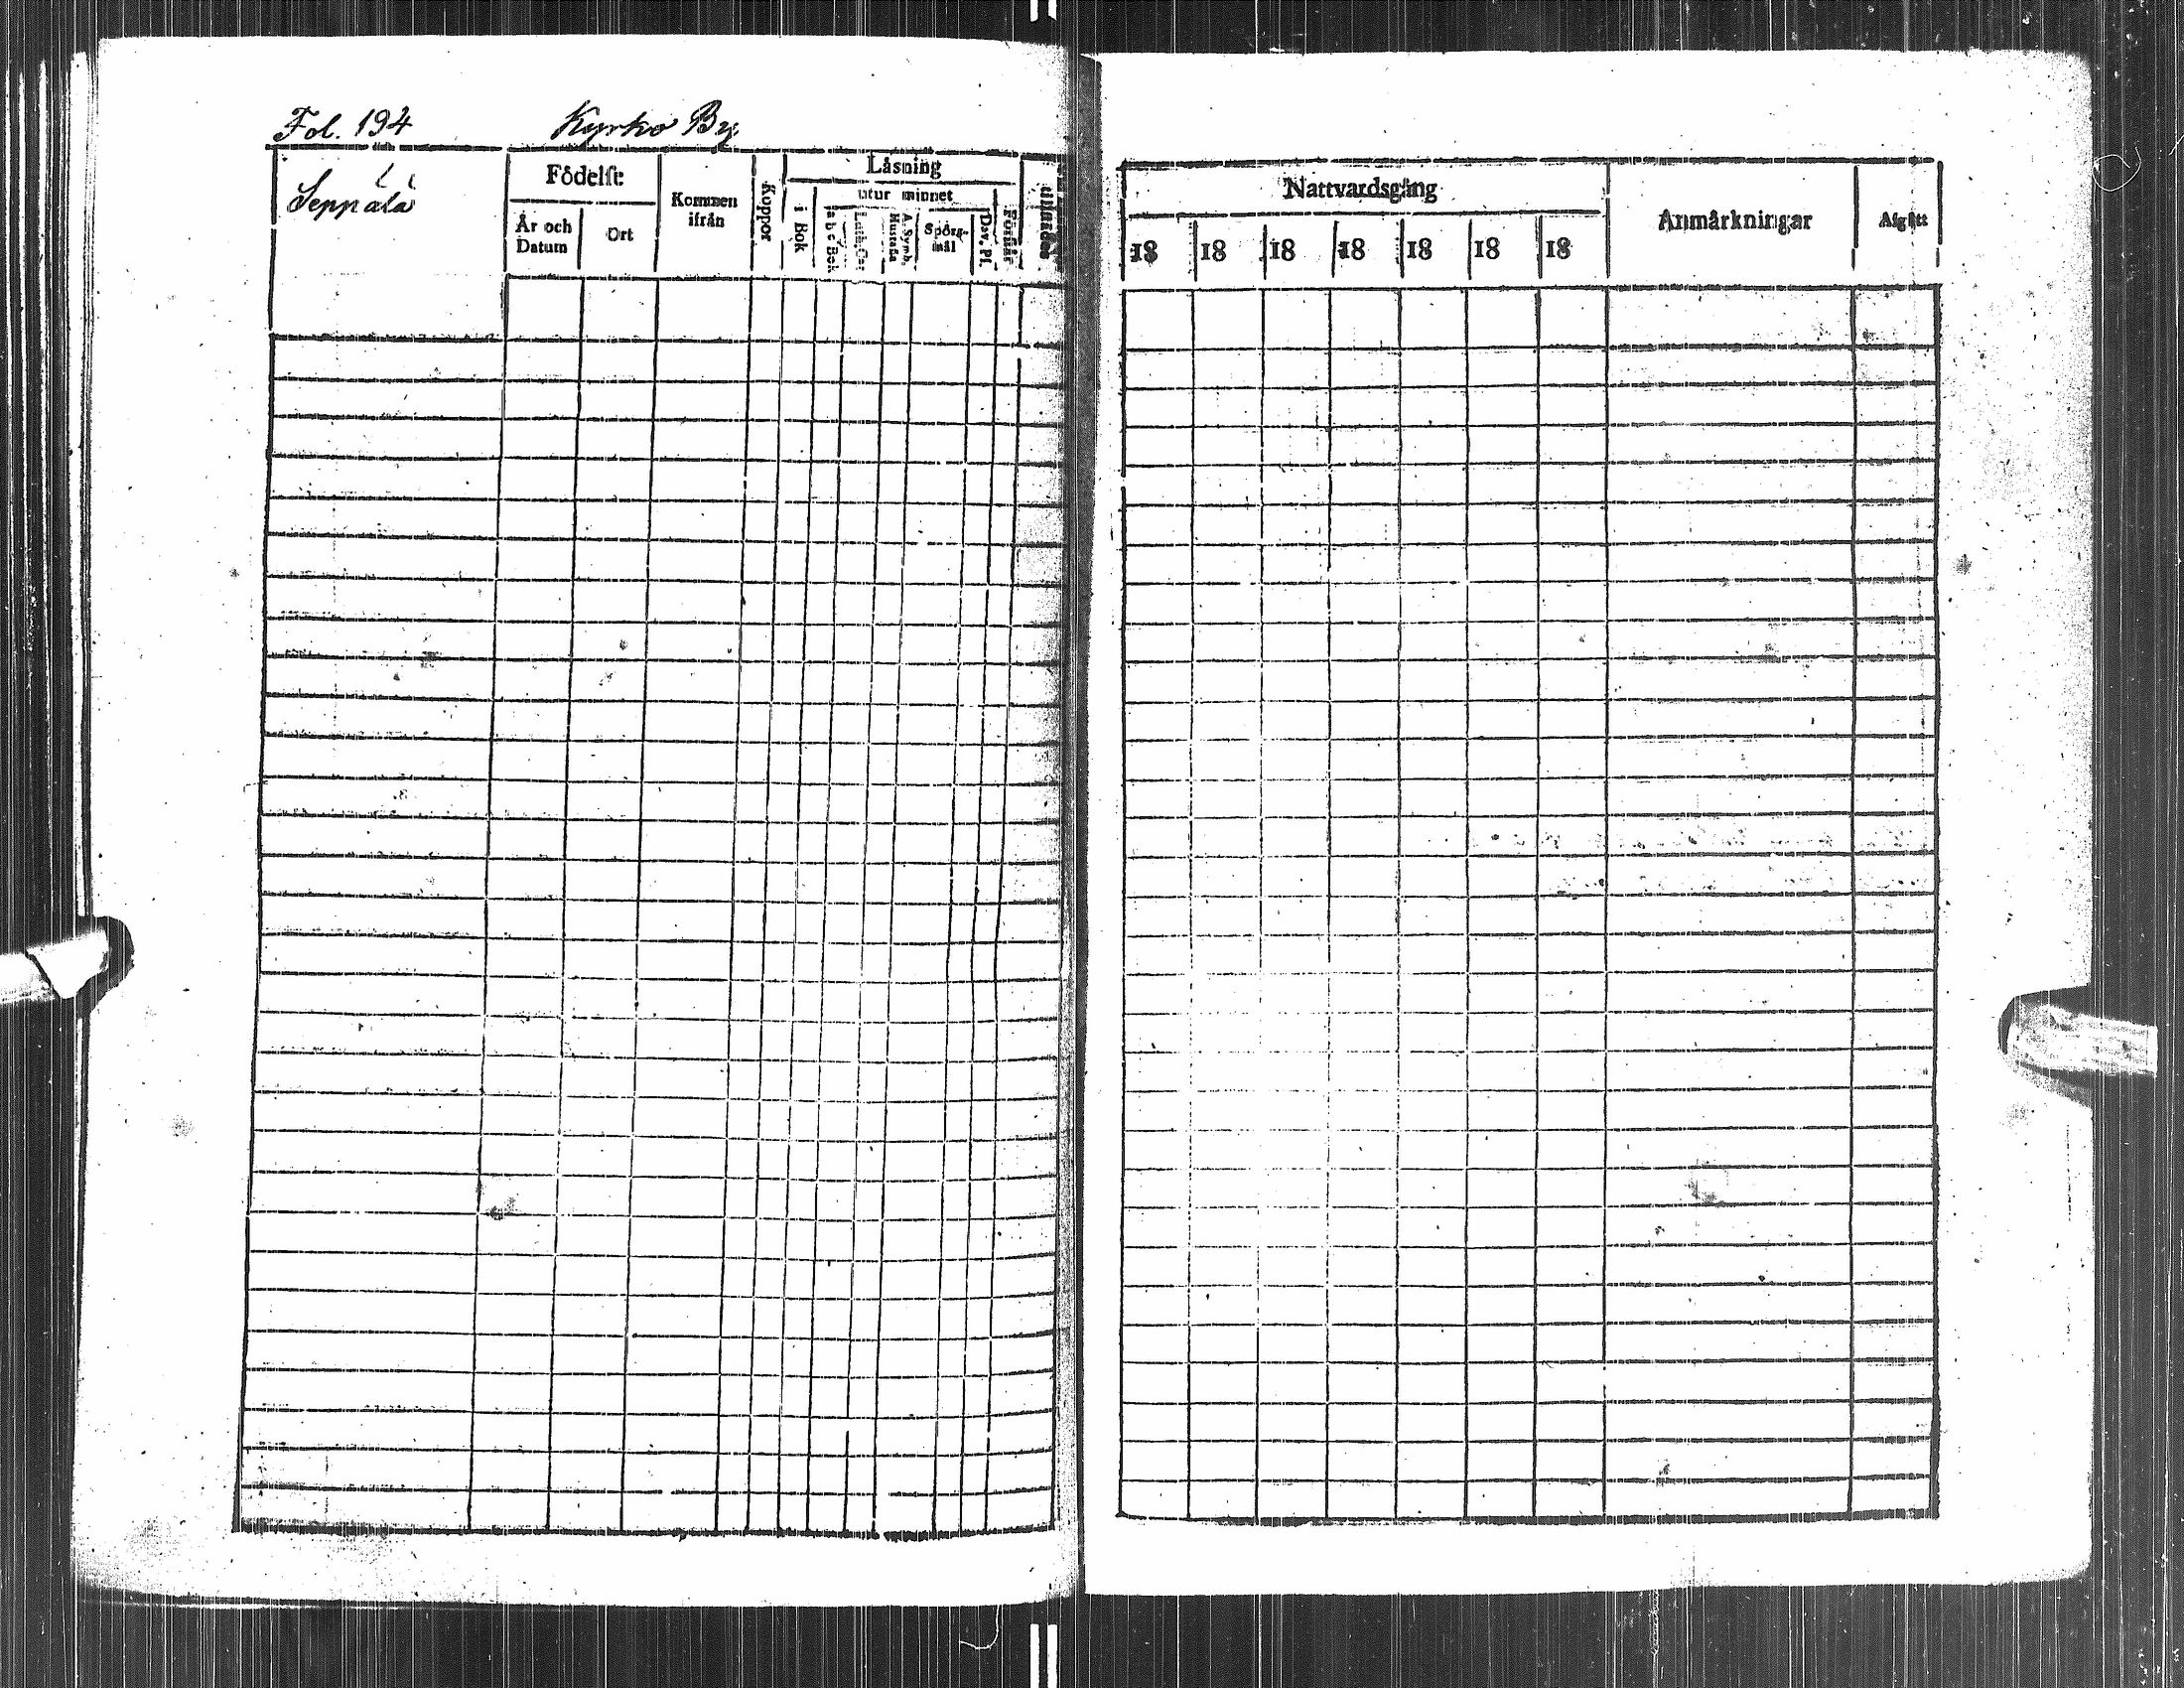 Fol. 194 Kyrko By
Seppälä
Födelse
År och Datum
Ort
Kommen ifrån
Koppor
Läsning
i Bok
utur minnet
a b c Bok
Luth. Cat
A. Symb. Hustafla
Spörgsmål
Dav. Ps.
Förstår
Nattvardsgång
18 18 18 18 18 18 18
Anmärkningar
Afgått